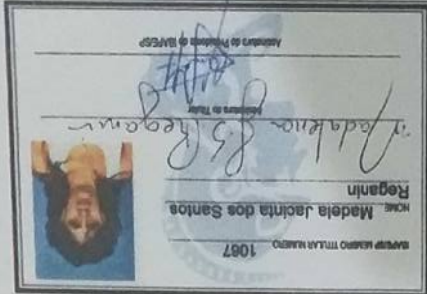 IBAPE/SP MEMBRO TITULAR NUMERO 1067
NOME Madela Jacinta dos Santos
Reganin
Madalena J S Reganin
Assinatura do Titular
Assinatura do Presidente do IBAPE/SP